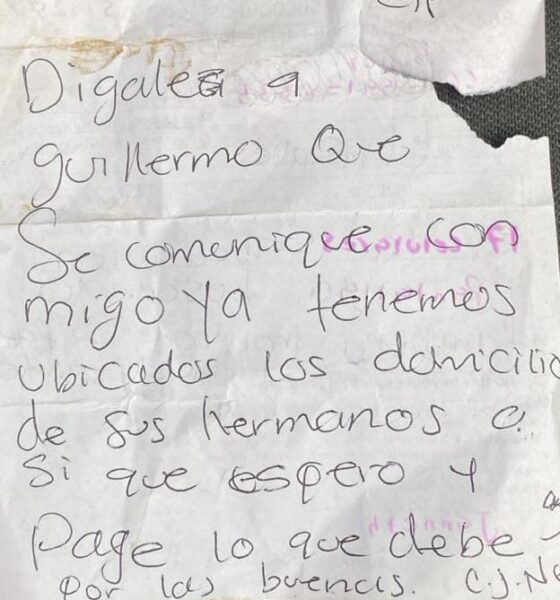 Digales a
guillermo Que
Se comunique con
migo Ya tenemos
Ubicados los domicilio
de sus hermanos a
Si que espero y
Page lo que debe
por las buenas. C.J.N